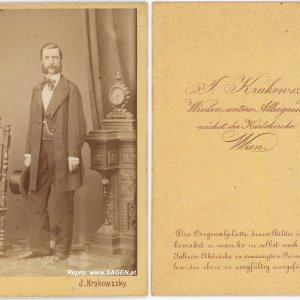 Repro: www.SAGEN.at
J. Krakowszky.
J. Krakowsz
Wieden, untere Alleegasse
nächst der Karlskirche
Wien.
Die Originalplatte dieses Bildes i
bewahrt u. man ke in selbst noch
Jahren Abdrücke zu ermässigten Preis
len die eben so sorgfältig ausgefü